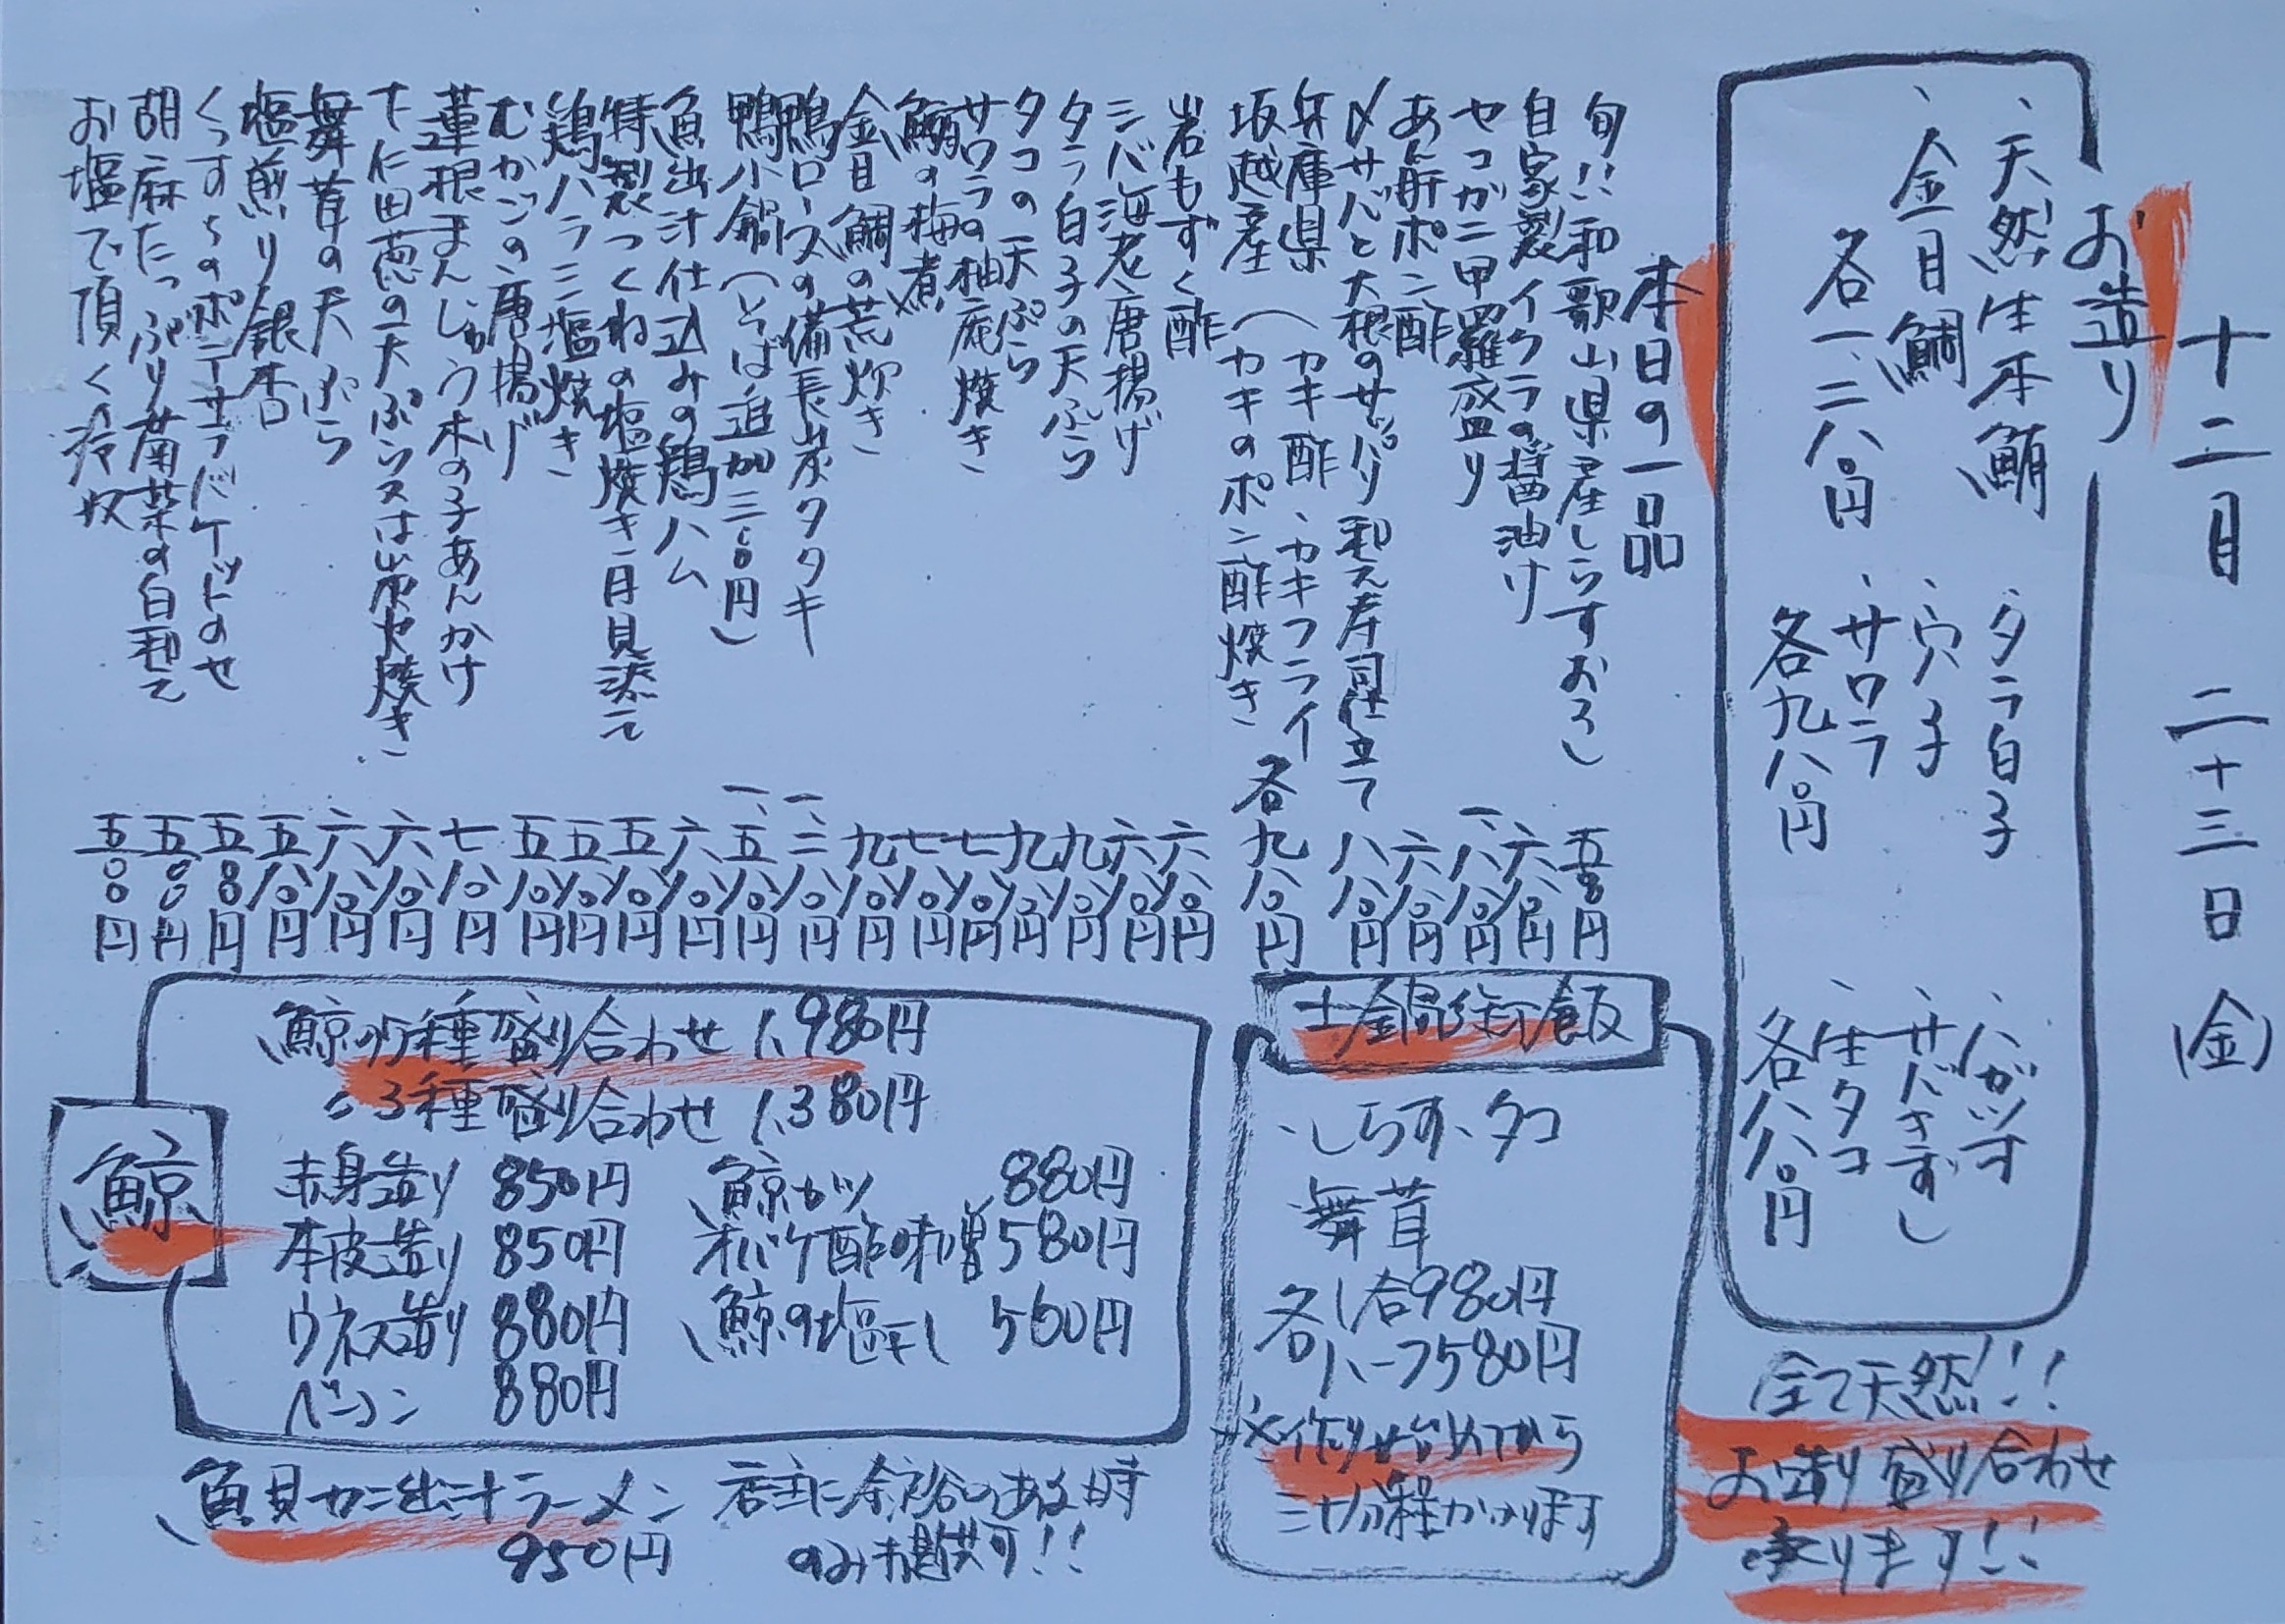 十二月 二十三日(金)
お造り
、天然生本鮪
、金目鯛
各一、二八〇円
、タラ白子
、穴子
、サワラ
各九八〇円
、ハガツオ
、サバきずし
、生タコ
各八八〇円
全て天然!!
お造り盛り合わせ
承ります!!
本日の一品
旬!!和歌山県産しらすおろし 五八〇円
自家製イクラの醤油け 六八〇円
セコガニ甲羅盛り 一、八八〇円
あん肝ポン酢 六八〇円
〆サバと大根のサッパリ和え寿司仕立て 八八〇円
兵庫県(カキ酢、カキフライ
坂越産(カキのポン酢焼き 各九八〇円
岩もずく酢 六八〇円
シバ海老唐揚げ 六八〇円
タラ白子の天ぷら 九八〇円
タコの天ぷら 九八〇円
サワラの柚庵焼き 七八〇円
鰯の梅煮 七八〇円
金目鯛の荒炊き 九八〇円
鴨ロースの備長炭タタキ 一、二八〇円
鴨小鍋(そば追加三〇〇円) 一、五八〇円
魚出汁仕込みの鶏ハム 六八〇円
特製つくねの塩焼き 月見添え 五八〇円
鶏ハラミ塩焼き 五八〇円
むかごの唐揚げ 五八〇円
蓮根まんじゅう木の子あんかけ 七八〇円
下仁田葱の天ぷら又は炭火焼き 六八〇円
舞茸の天ぷら 六八〇円
塩煎り銀杏 五八〇円
くっすちのポテサラバケットのせ 五〇〇円
胡麻たっぷり菊菜の白和え 五〇〇円
お塩で頂く冷奴 五〇〇円
土鍋御飯
、しらす、タコ
舞茸
各1合980円
各ハーフ580円
※作り始めてから
三十分程かかります
鯨
鯨の5種盛り合わせ 1,980円
〃3種盛り合わせ 1,380円
赤身造り 850円
本皮造り 850円
ウネス造り 880円
ベーコン 880円
鯨カツ 880円
オバケ酢味噌 580円
鯨の塩干し 560円
魚貝カニ出汁ラーメン
950円
店主に余裕のある時
のみ提供可!!